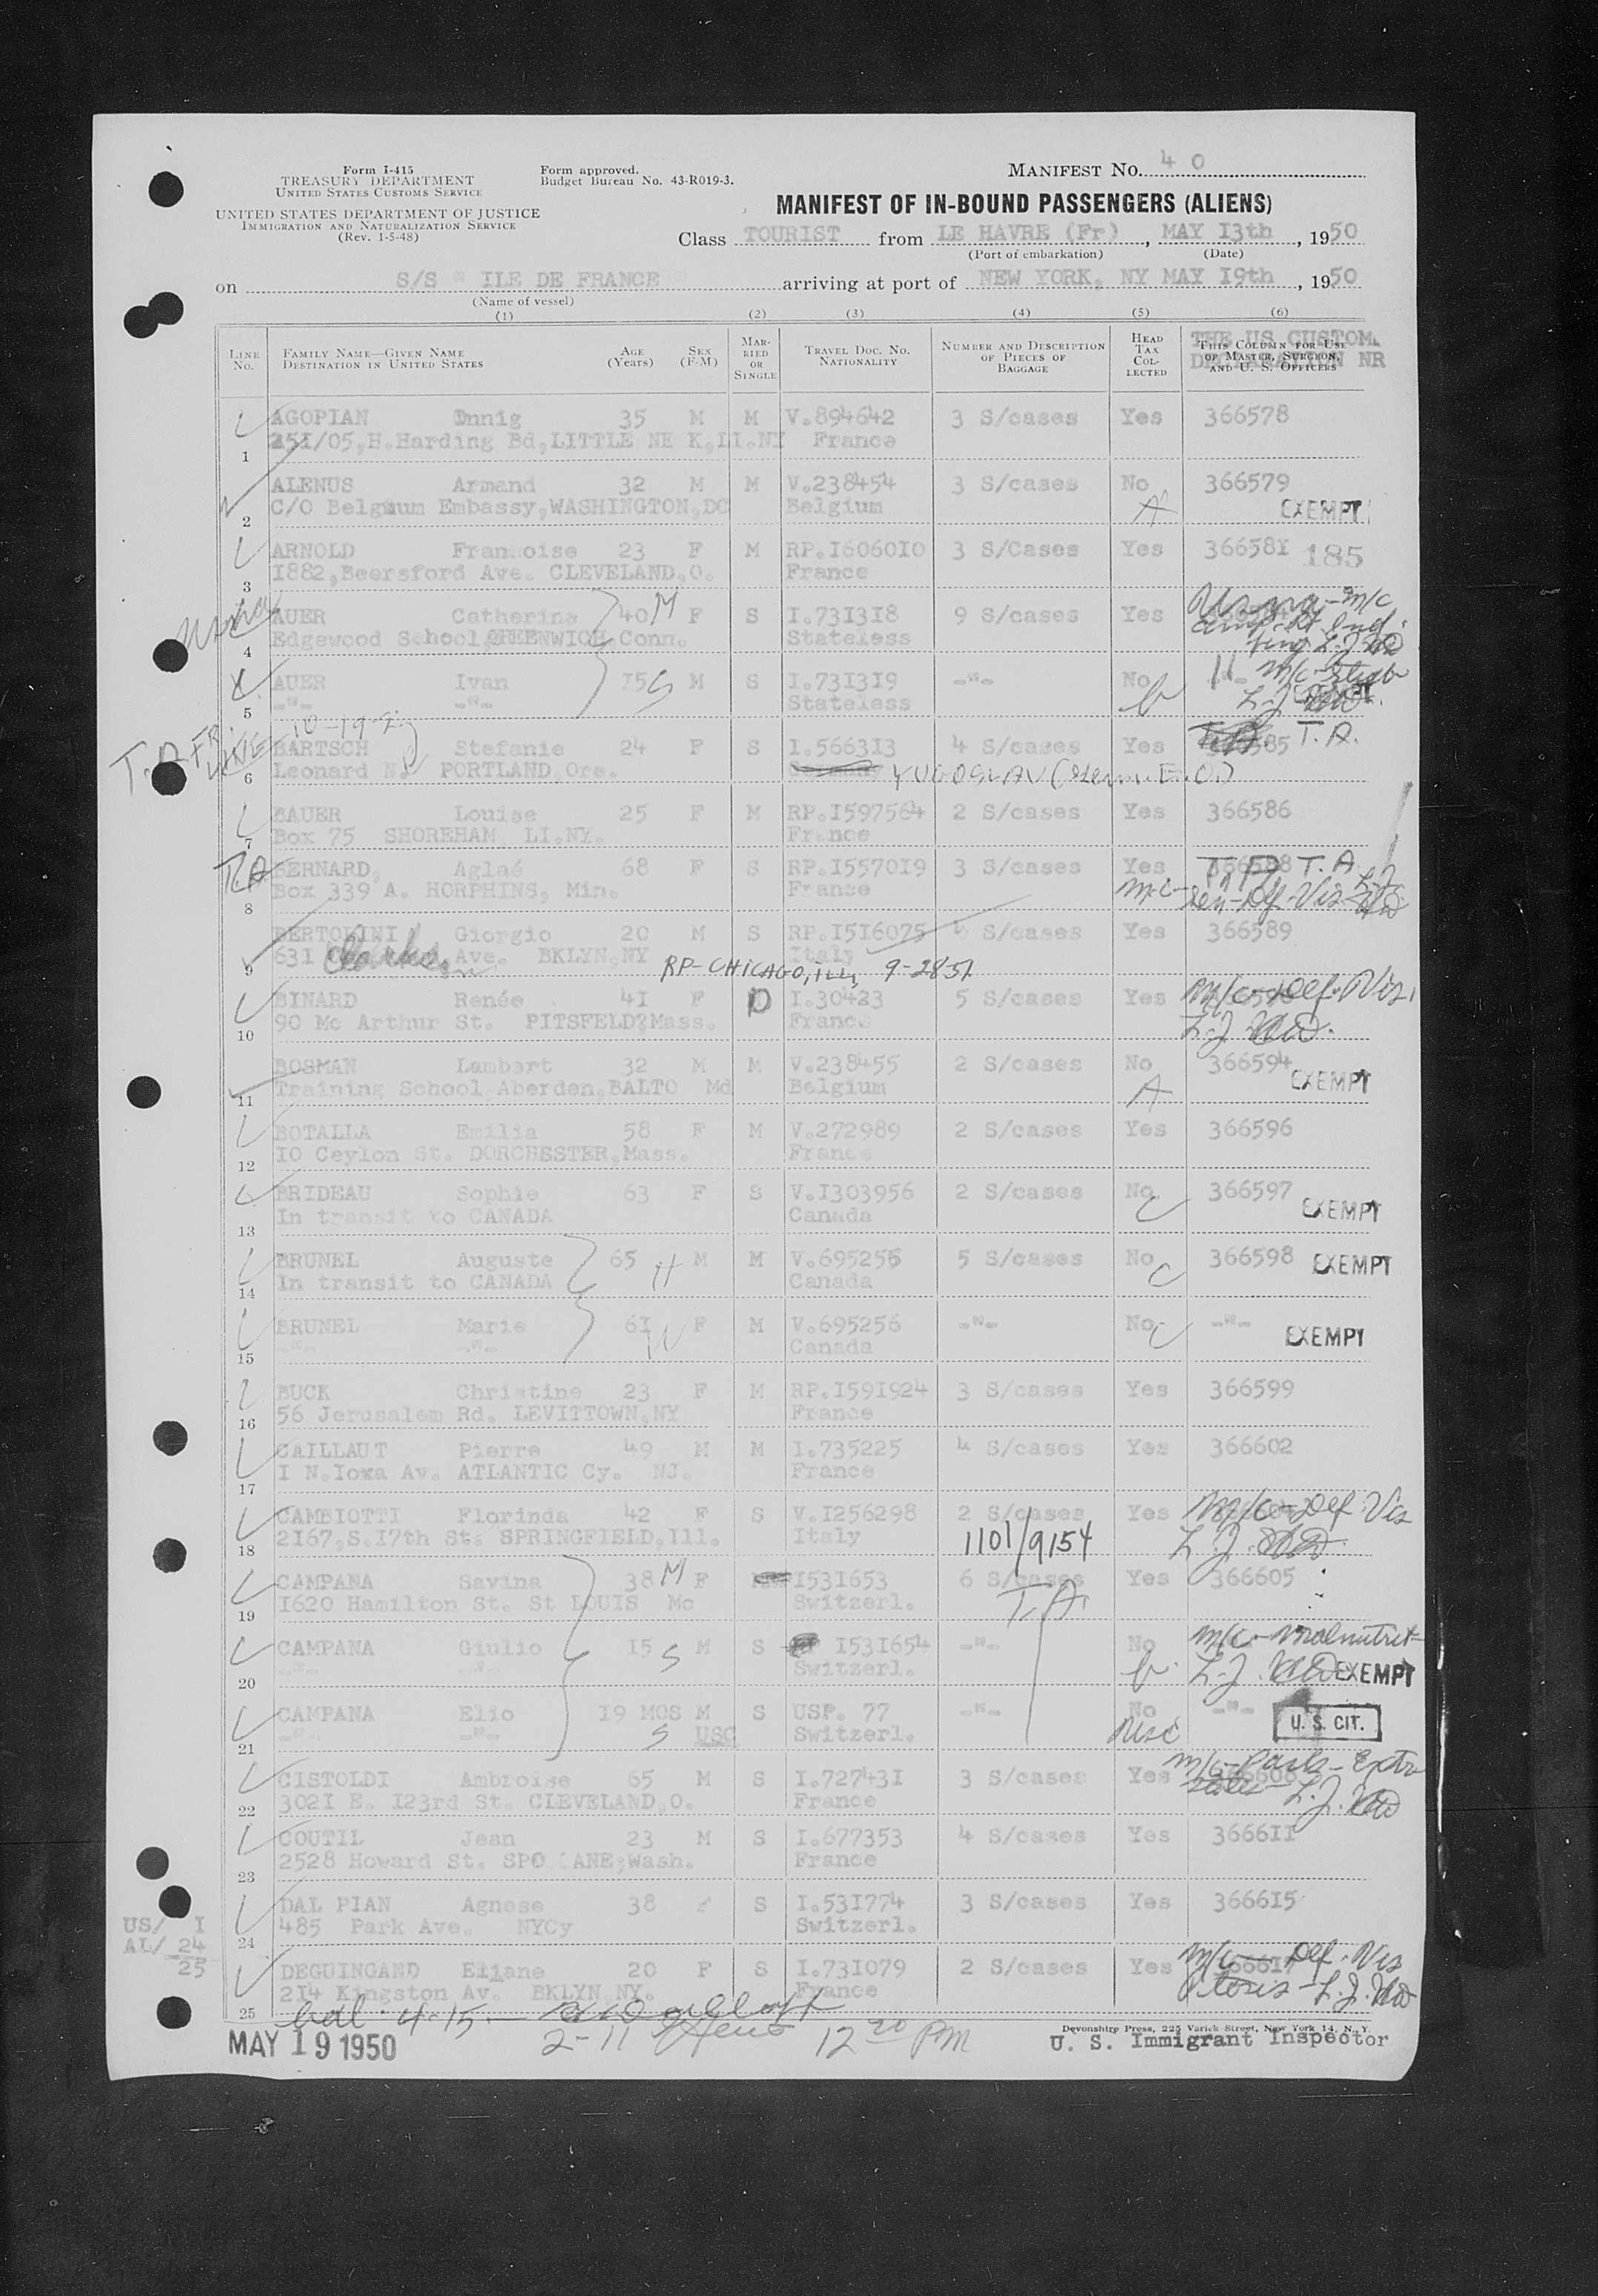 Form I-415
TREASURY DEPARTMENT
UNITED STATES CUSTOMS SERVICE
UNITED STATES DEPARTMENT OF JUSTICE
IMMIGRATION AND NATURALIZATION SERVICE
(Rev. 1-5-48)
Form approved.
Budget Bureau No. 43-R019-3.
MANIFEST NO. 40
MANIFEST OF IN-BOUND PASSENGERS (ALIENS)
Class TOURIST from LE HAVRE (Fr), MAY I3th, 1950
(Port of embarkation) (Date)
on S/S " ILE DE FRANCE " arriving at port of NEW YORK, NY MAY I9th, 1950
(Name of vessel)
(1) (2) (3) (4) (5) (6)
LINE No. FAMILY NAME—GIVEN NAME DESTINATION IN UNITED STATES AGE (Years) SEX (F-M) MARRIED OR SINGLE TRAVEL DOC. NO. NATIONALITY NUMBER AND DESCRIPTION OF PIECES OF BAGGAGE HEAD TAX COLLECTED THIS COLUMN FOR USE OF MASTER, SURGEON, AND U. S. OFFICERS
THE US CUSTOM
NR
AGOPIAN 35 M M V.894642 3 S/cases Yes 366578
H.Harding Bd,LITTLE NE K,LI.NY France
1
ALENUS Armand 32 M M V.238454 3 S/cases No 366579
C/O Belgium Embassy,WASHINGTON,DC Belgium A EXEMPT
2
ARNOLD Francoise 23 F M RP.I6060I0 3 S/Cases Yes 36658I 185
I882,Beersford Ave. CLEVELAND,O. France
3
AUER Catherine 40 M F S I.73I3I8 9 S/cases Yes
Edgewood School,GREENWICH Conn. Stateless
4
AUER Ivan I5 S M S I.73I3I9 -"- No
-"- -"- Stateless
5
BARTSCH Stefanie 24 F S I.5663I3 4 S/cases Yes T.A.
Leonard N. PORTLAND Ore. YUGOSLAV
6
BAUER Louise 25 F M RP.I597564 2 S/cases Yes 366586
Box 75 SHOREHAM LI.NY. France
7
T.A. BERNARD, Aglaé 68 F S RP.I5570I9 3 S/cases Yes T.A.
Box 339 A. HORPHINS, Min. France
8
BERTOLINI Giorgio 20 M S RP.I5I6075 S/cases Yes 366589
631 Ave. BKLYN,NY Italy
9
RP-CHICAGO, ILL, 9-2851
BINARD Renée 4I F D I.30423 5 S/cases Yes m/c-Def.Vis.
90 Mc Arthur St. PITSFELD?Mass. France
10
BOSMAN Lambert 32 M M V.238455 2 S/cases No 366594
Training School Aberden,BALTO Md Belgium A EXEMPT
11
BOTALLA Emilia 58 F M V.272989 2 S/cases Yes 366596
I0 Ceylon St. DORCHESTER,Mass. France
12
BRIDEAU Sophie 63 F S V.I303956 2 S/cases No 366597
In transit to CANADA Canada C EXEMPT
13
BRUNEL Auguste 65 H M M V.695255 5 S/cases No 366598 EXEMPT
In transit to CANADA Canada C
14
BRUNEL Marie 6I W F M V.695256 -"- No -"-
-"- -"- Canada C EXEMPT
15
BUCK Christine 23 F M RP.I59I924 3 S/cases Yes 366599
56 Jerusalem Rd. LEVITTOWN,NY France
16
CAILLAUT Pierre 49 M M I.735225 4 S/cases Yes 366602
I N.Iowa Av. ATLANTIC Cy. NJ. France
17
CAMBIOTTI Florinda 42 F S V.I256298 2 S/cases Yes m/c-Def Vis
2I67,S.I7th St. SPRINGFIELD,Ill. Italy 1101/9154
18
CAMPANA Savina 38 M F I53I653 6 S/cases Yes 366605
I620 Hamilton St. St LOUIS Mo Switzerl. T.A.
19
CAMPANA Giulio I5 S M S I53I654 -"- No m/c-malnutrit
-"- -"- Switzerl. EXEMPT
20
CAMPANA Elio I9 MOS M S USP. 77 -"- No -"-
-"- -"- S USC Switzerl. U. S. CIT.
21
CISTOLDI Ambroise 65 M S I.72743I 3 S/cases Yes
302I E. I23rd St. CLEVELAND,O. France
22
COUTIL Jean 23 M S I.677353 4 S/cases Yes 3666II
2528 Howard St. SPO ANE,Wash. France
23
DAL PIAN Agnese 38 S I.53I774 3 S/cases Yes 3666I5
485 Park Ave. NYCy Switzerl.
24
US/ I
AL/ 24
25
DEGUINGAND Eliane 20 F S I.73I079 2 S/cases Yes m/c-Def.Vis
2I4 Kingston Av. BKLYN NY. France
25
MAY 19 1950
2-11 12 20 PM
Devonshire Press, 225 Varick Street, New York 14, N. Y.
U. S. Immigrant Inspector